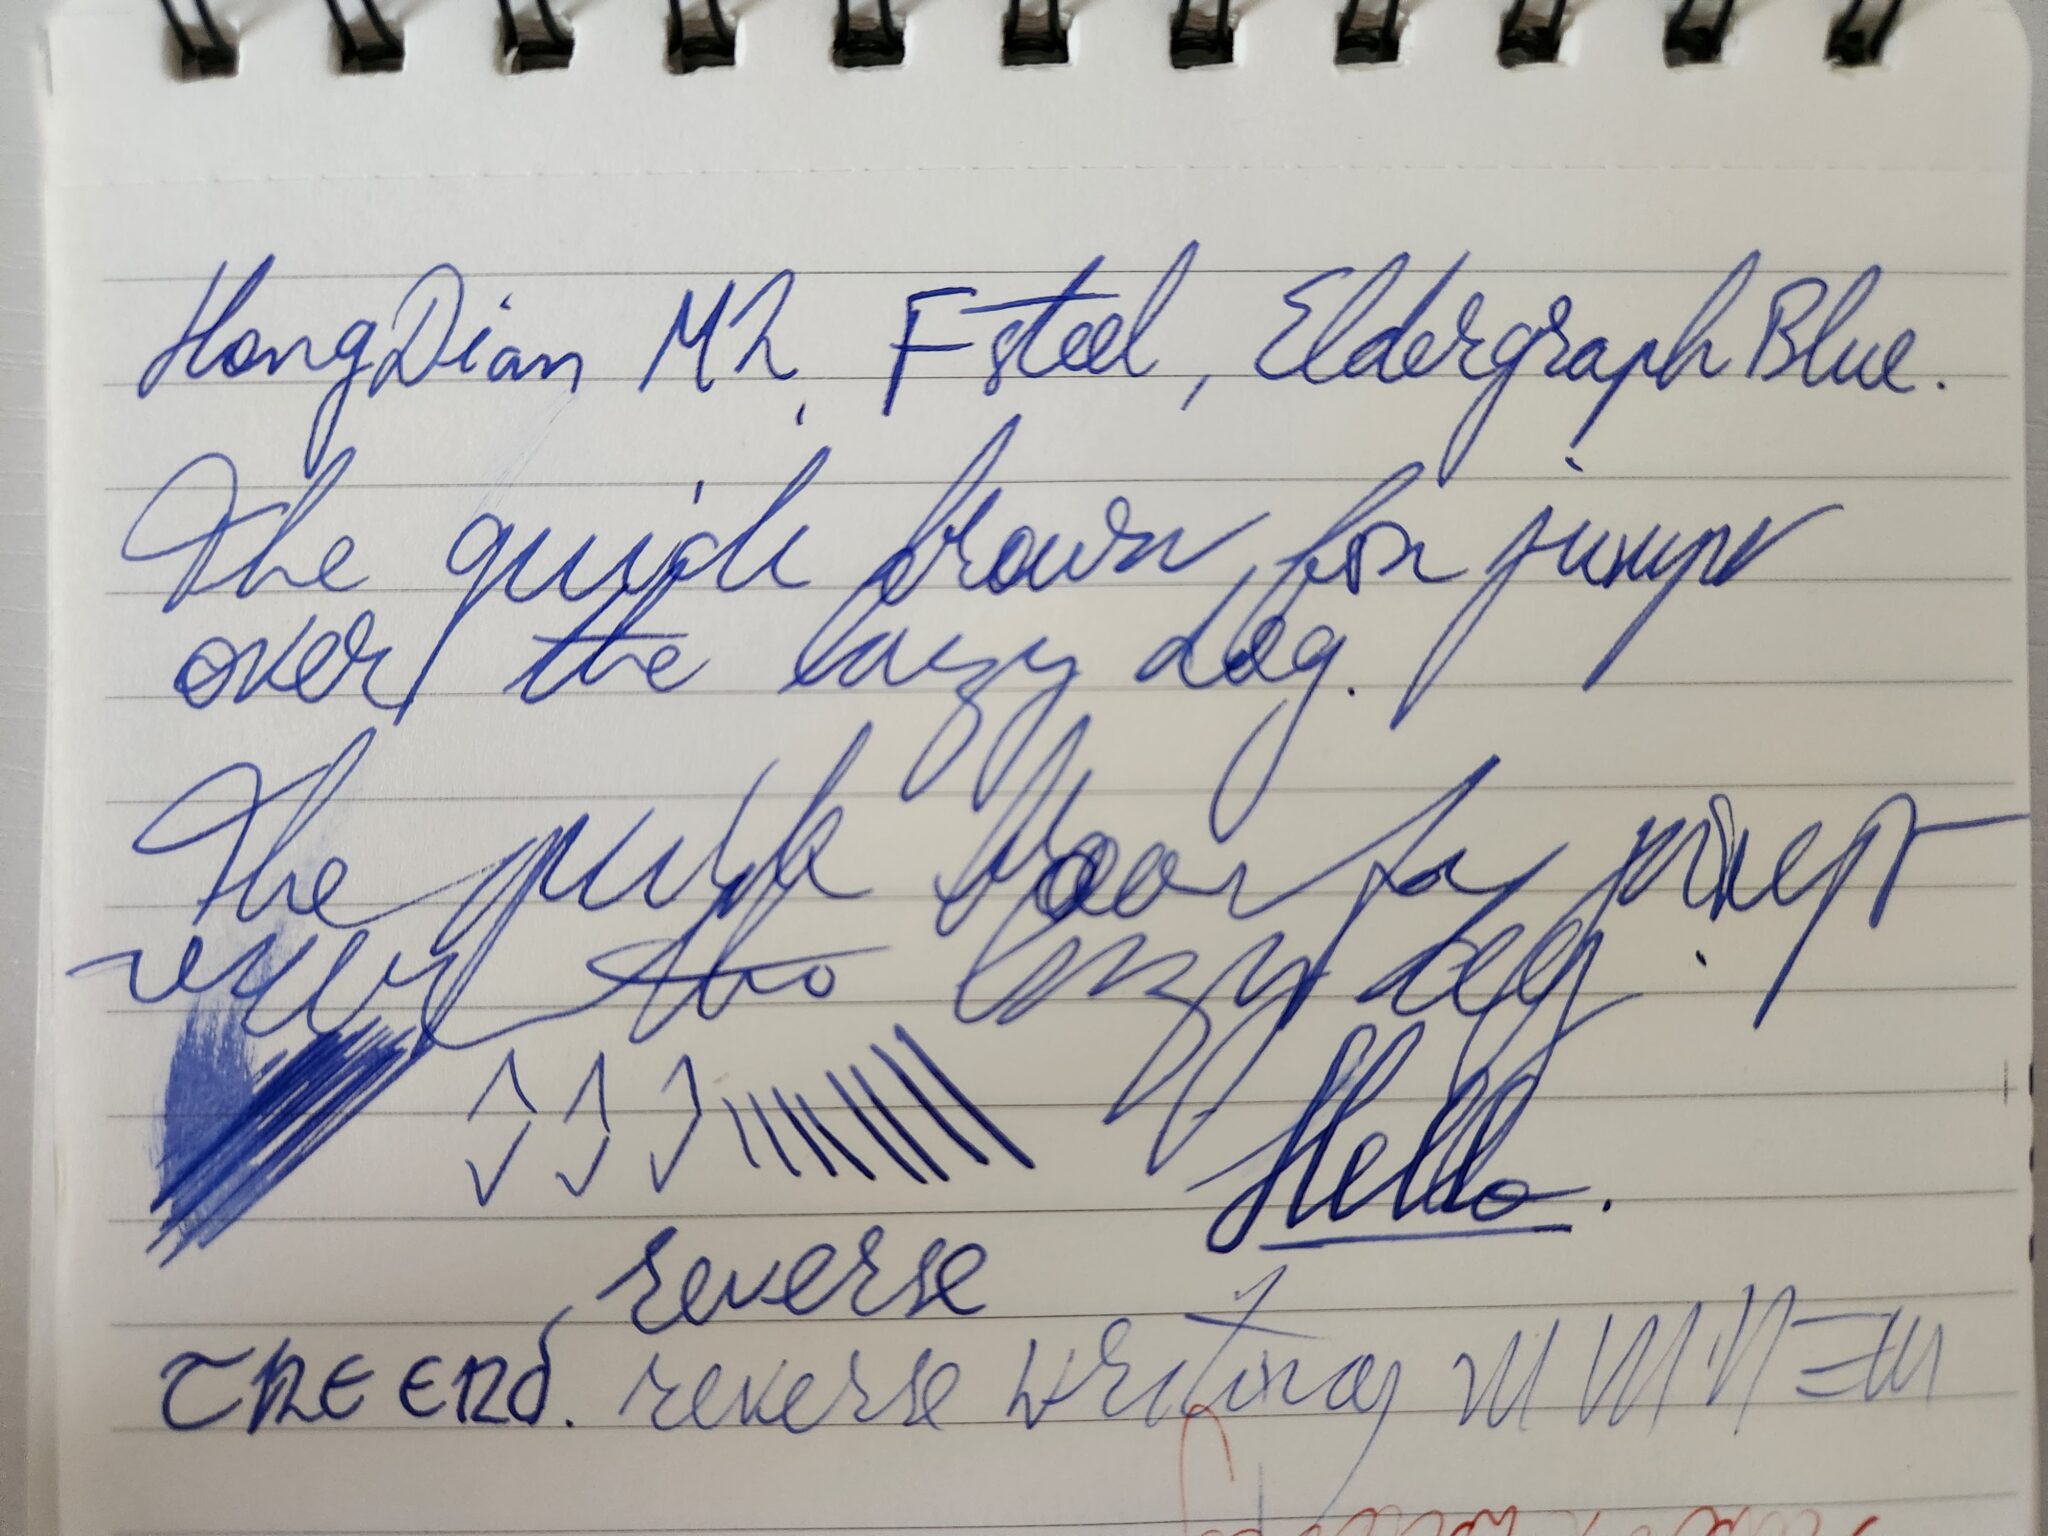 HongDian M2, F steel, Eldergraph Blue.
The quick brown fox jumps
over the lazy dog.
The quick brown fox jumps
over the lazy dog.
Hello.
reverse
THE END. reverse writing